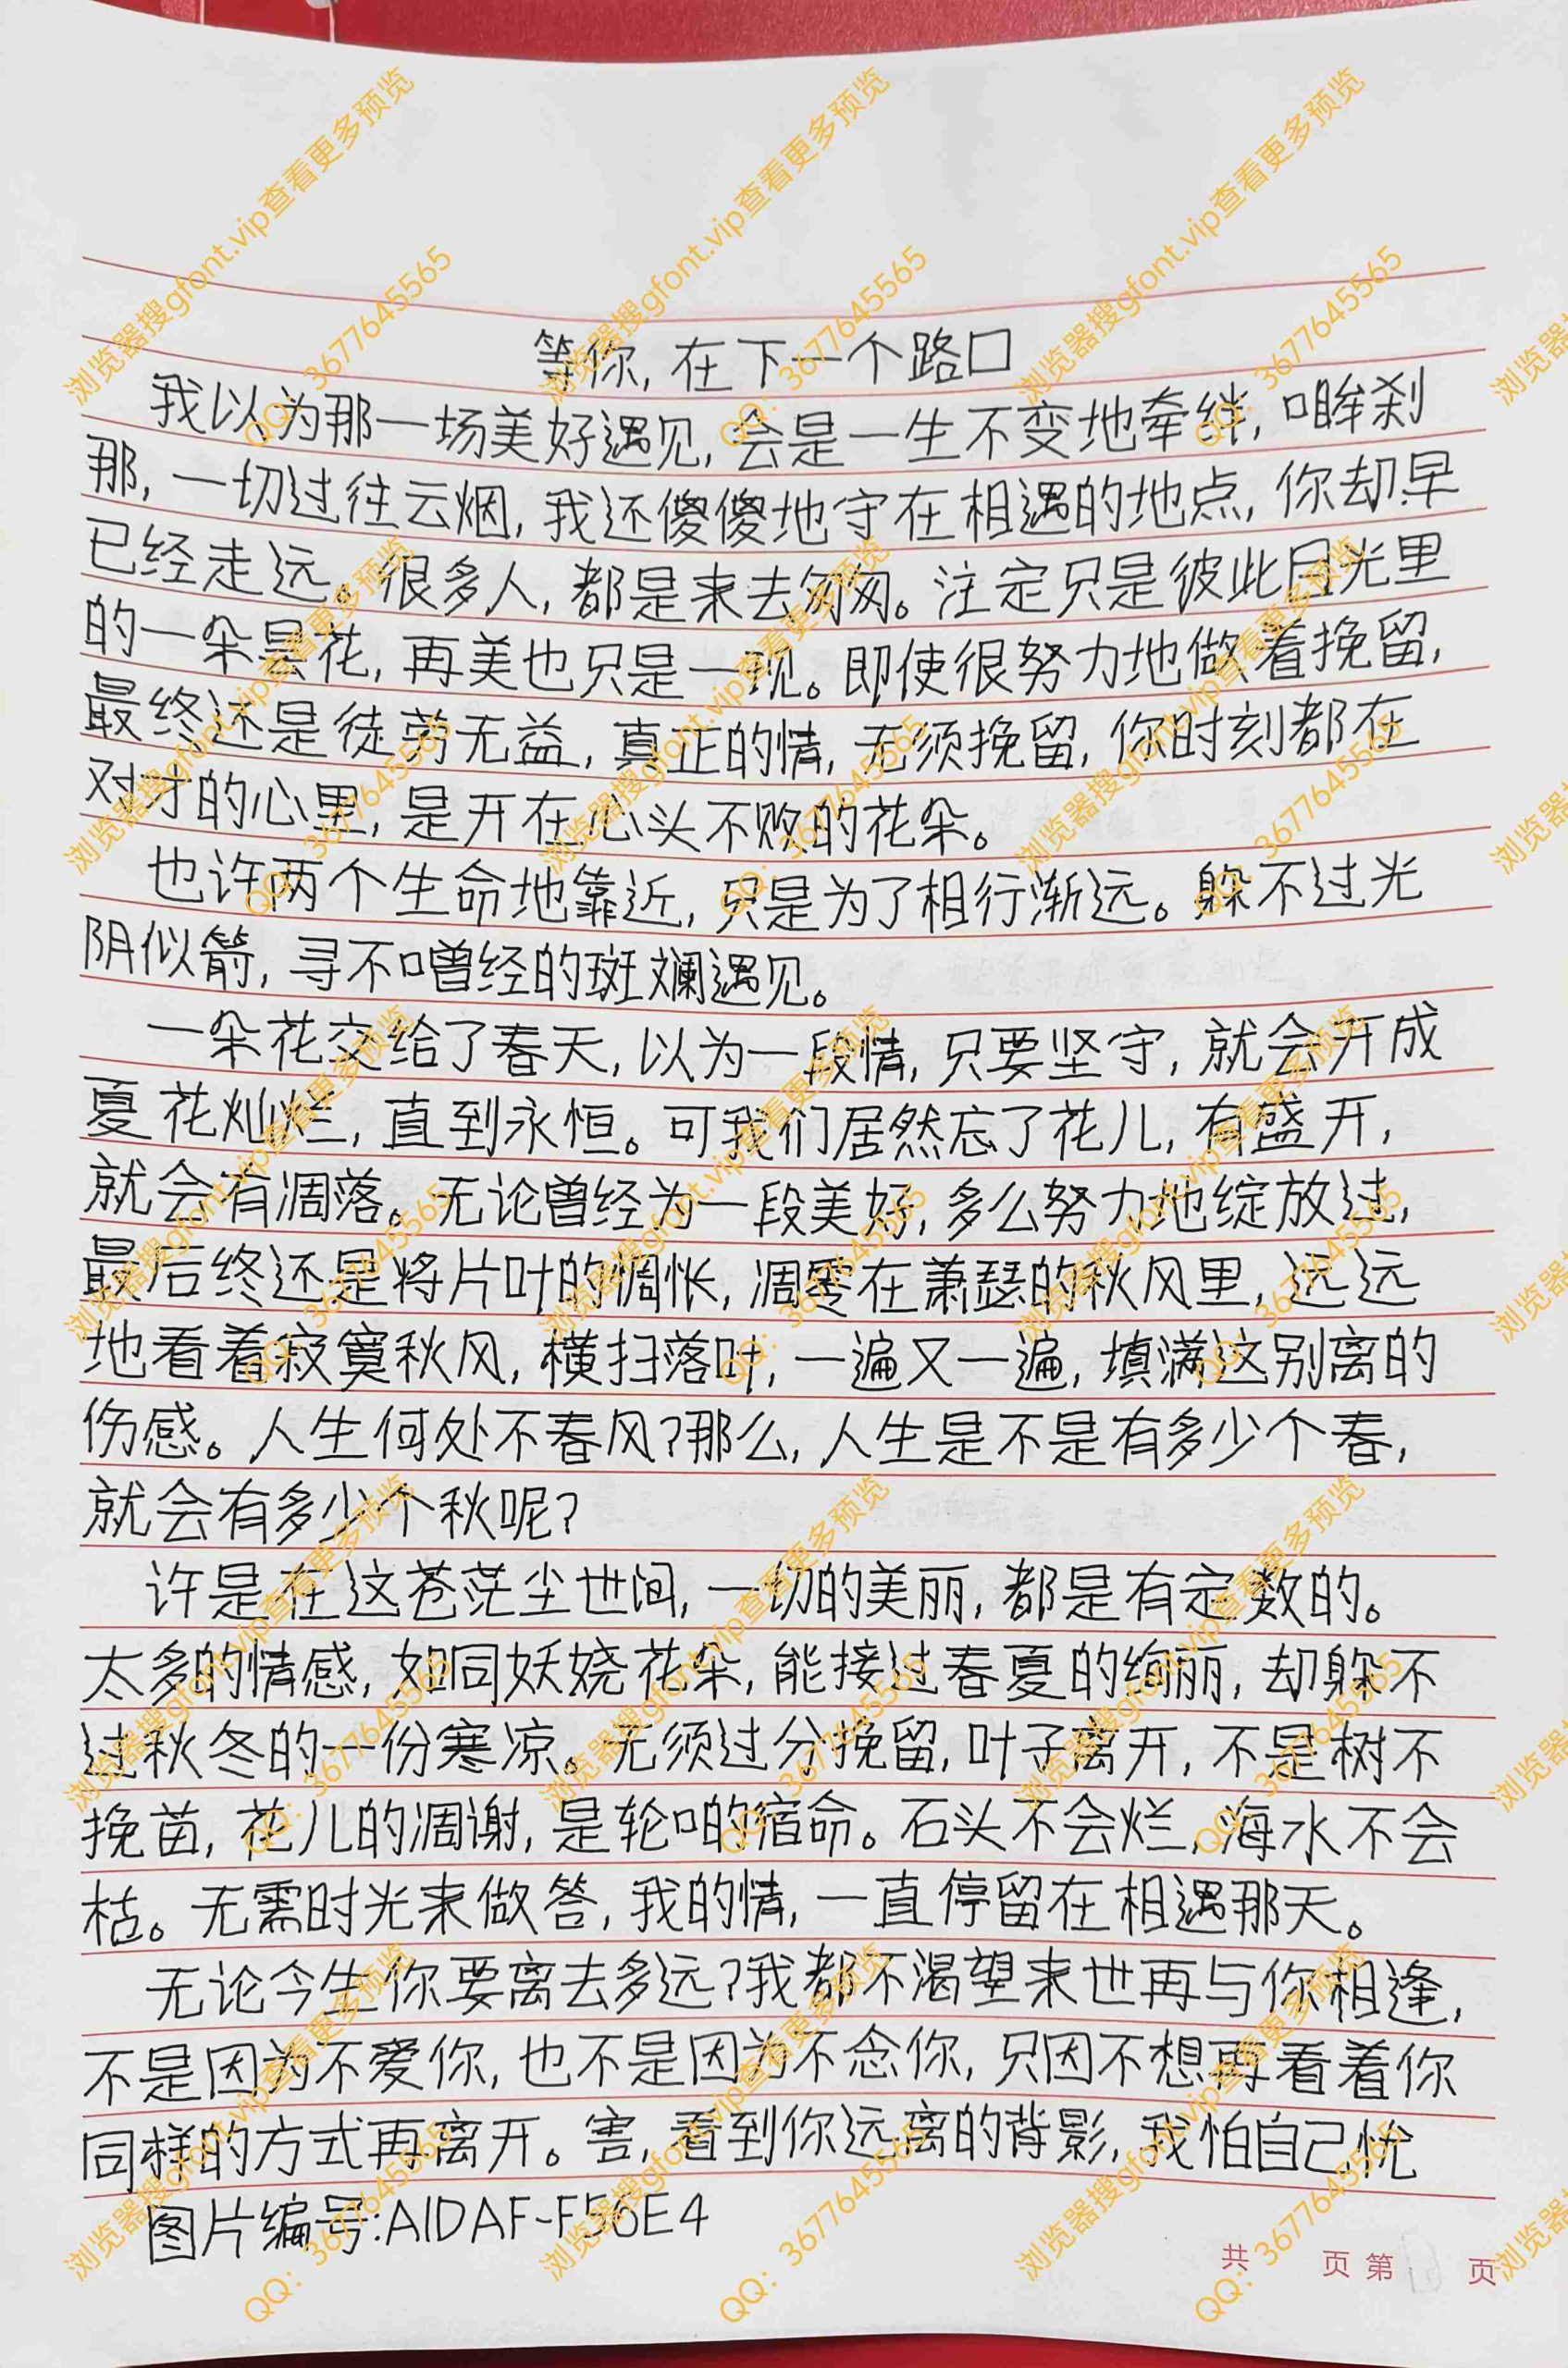 等你,在下一个路口
我以为那一场美好遇见,会是一生不变地牵绊,眸刹
那,一切过往云烟,我还傻傻地守在相遇的地点,你却早
已经走远。很多人,都是来去匆匆。注定只是彼此目光里
的一朵昙花,再美也只是一现。即使很努力地做着挽留,
最终还是徒劳无益,真正的情,无须挽留,你时刻都在
对才的心里,是开在心头不败的花朵。
也许两个生命地靠近,只是为了相行渐远。躲不过光
阴似箭,寻不噌经的斑斓遇见。
一朵花交给了春天,以为一段情,只要坚守,就会开成
夏花灿烂,直到永恒。可我们居然忘了花儿,有盛开,
就会有凋落。无论曾经为一段美好,多么努力地绽放过,
最后终还是将片叶的惆怅,凋零在萧瑟的秋风里,远远
地看着寂寞秋风,横扫落叶,一遍又一遍,填满这别离的
伤感。人生何处不春风?那么,人生是不是有多少个春,
就会有多少个秋呢?
许是在这苍茫尘世间,一切的美丽,都是有定数的。
太多的情感,如同妖娆花朵,能接过春夏的绚丽,却躲不
过秋冬的一份寒凉。无须过分挽留,叶子离开,不是树不
挽苗,花儿的凋谢,是轮啲宿命。石头不会烂,海水不会
枯。无需时光来做答,我的情,一直停留在相遇那天。
无论今生你要离去多远?我都不渴望来世再与你相逢,
不是因为不爱你,也不是因为不念你,只因不想再看着你
同样的方式再离开。害,看到你远离的背影,我怕自己忧
图片编号:AIDAF-F56E4
共 页 第 页
浏览器搜gfont.vip查看更多预览
QQ: 3677645565